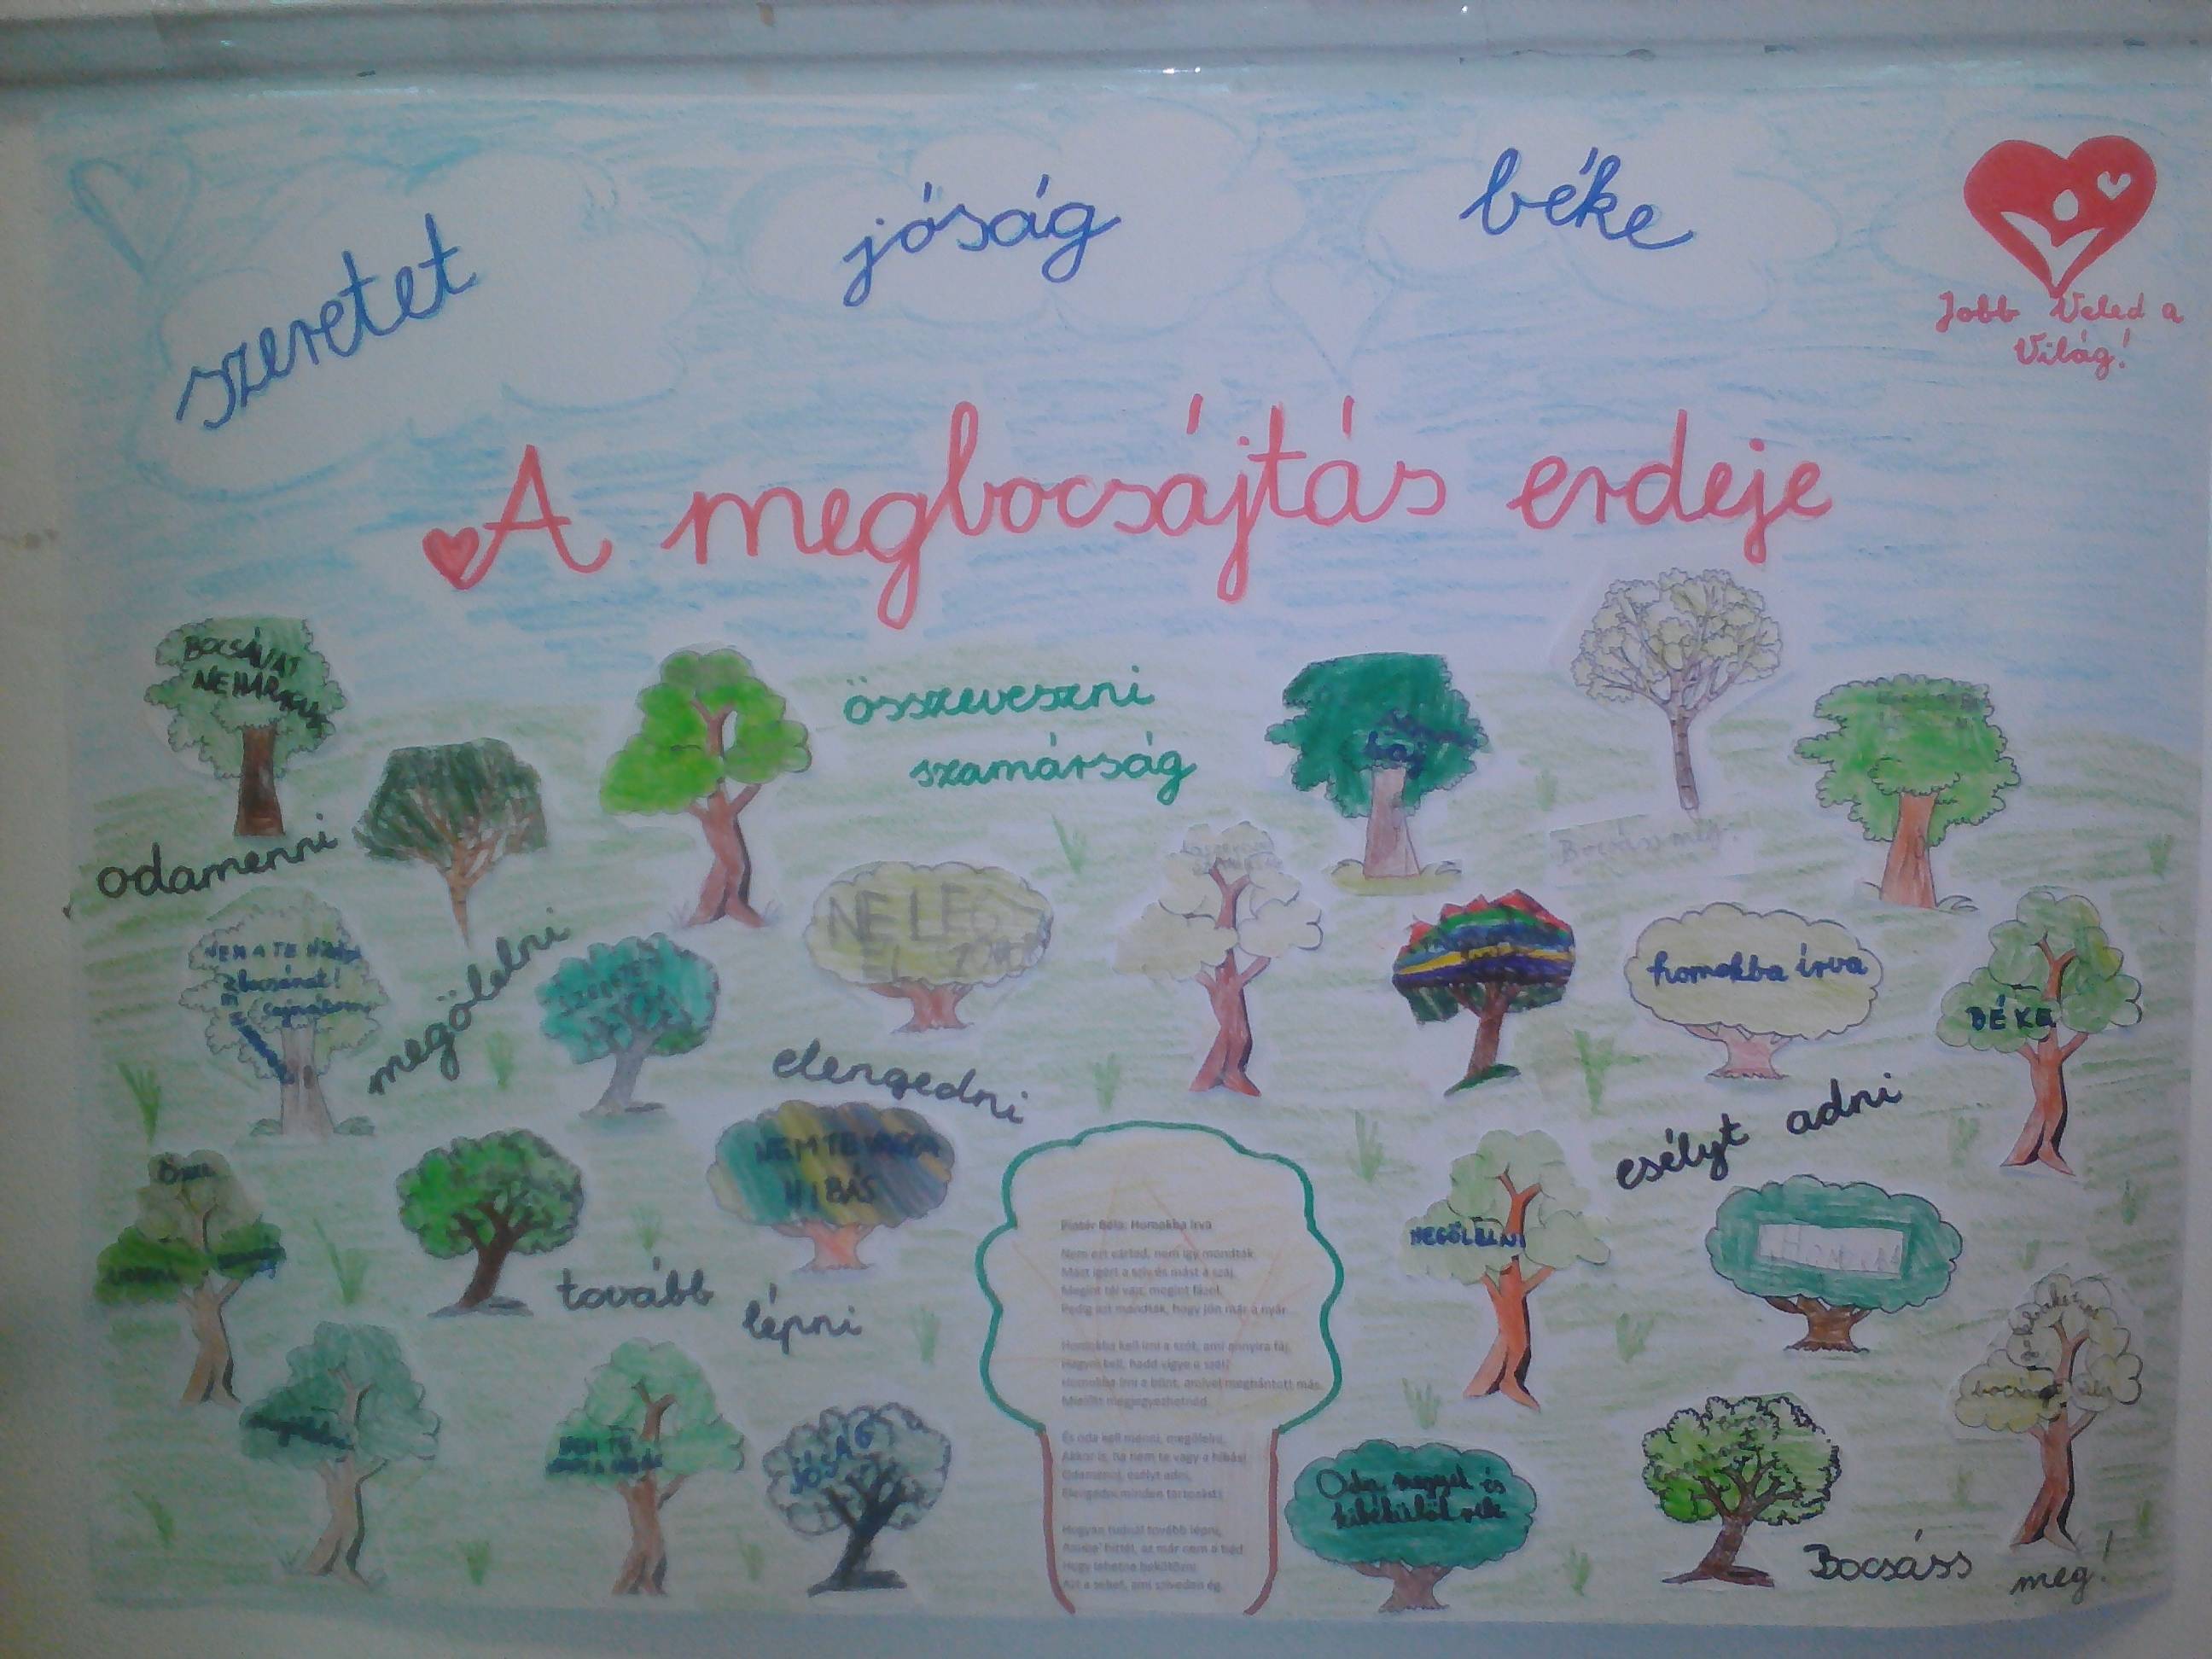 szeretet
jóság
béke
Jobb Veled a
Világ!
A megbocsájtás erdeje
BOCSÁNAT
összeveszni
szamárság
baj
odamenni
Bocsáss meg!
NE LÉGY
NEM A TE HIBÁD
bocsánat!
Sajnálom
megölelni
homokba írva
BÉKE
elengedni
esélyt adni
NEM TE VAGY A
HIBÁS
MEGÖLELNI
tovább
lépni
Homokba írva
Nem ezt vártad, nem így mondták
Mást ígért a szív és mást a száj.
Megint tél vajt, megint fázol,
Pedig azt mondták, hogy jön már a nyár.
Homokba kell írni a szót, ami annyira fáj,
Hagyni kell, hadd vigye a szél!
Homokba írni a bűnt, amivel megbántott más,
Mielőtt megjegyezhetnéd.
És oda kell menni, megölelni,
Akkor is, ha nem te vagy a hibás!
Odamenni, esélyt adni,
Elengedni minden tartozást!
Hogyan tudnál tovább lépni,
Hogy lehetne bekötözni
Azt a sebet, ami szívedén ég.
NEM TE
JÓSÁG
Oda megyek és
kibékülök vele
bocsánat
Bocsáss
meg!